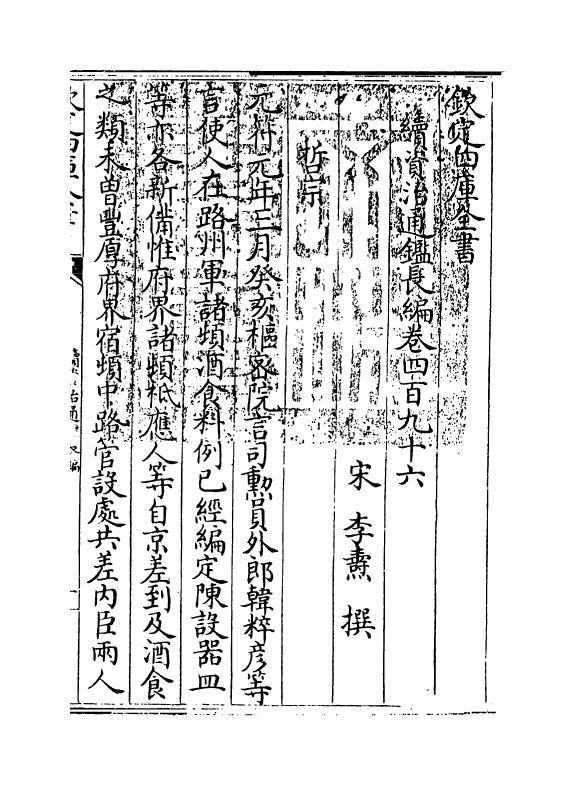 欽定四庫全書
續資治通鑑長編卷四百九十六
宋 李燾 撰
哲宗
元符元年三月癸亥樞密院言司勲員外郎韓粹彦等
言使人在路州軍諸頓酒食料例已經編定陳設器皿
等亦各新備惟府界諸頓祗應人等自京差到及酒食
之類未曾豐厚府界宿頓中路官設處共差内臣兩人